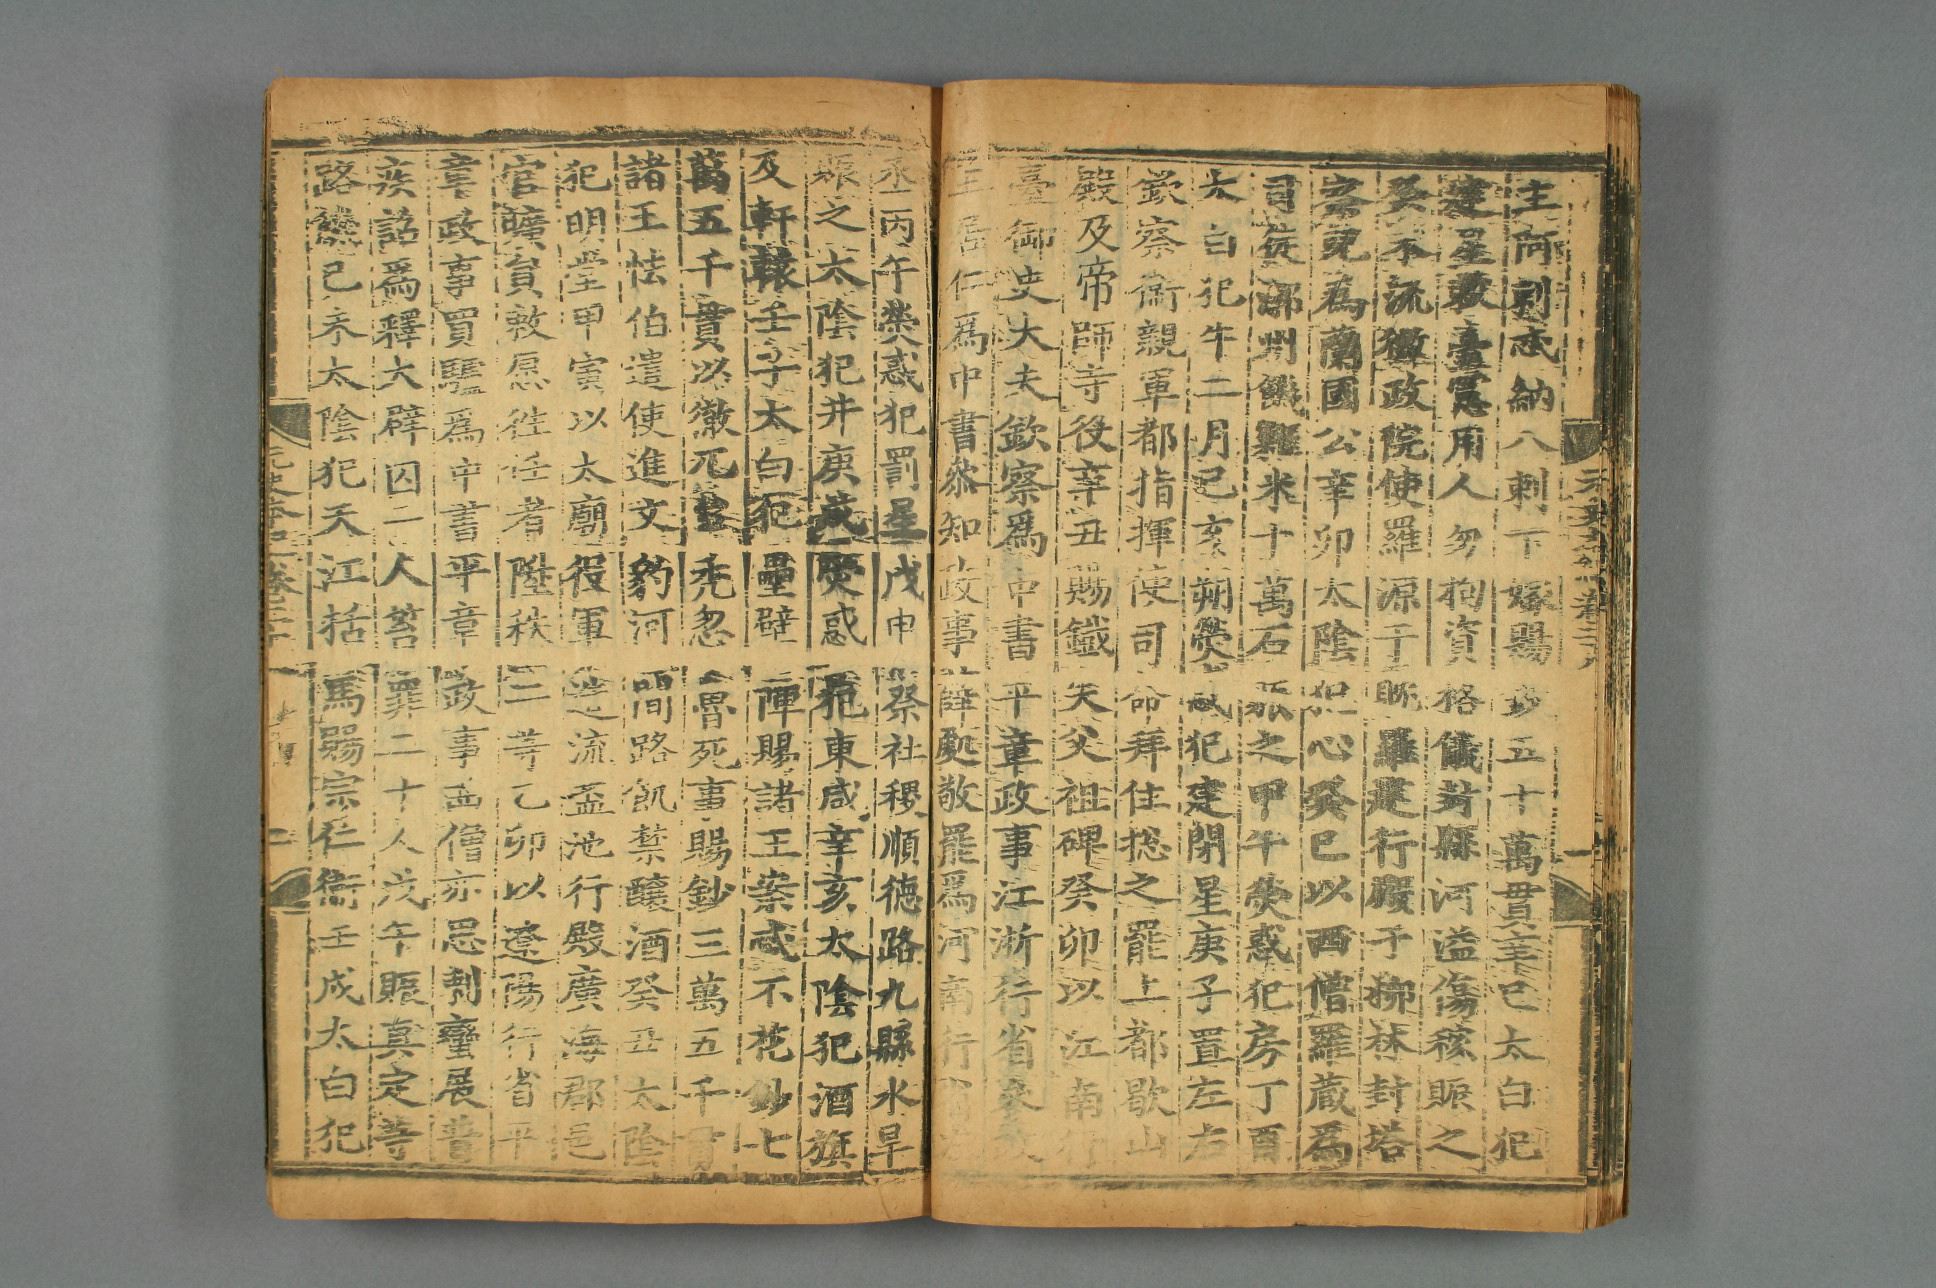 主阿剌忒納八剌下嫁賜鈔五十萬貫辛巳太白犯
建星敕臺憲用人勿拘資格儀封縣河溢傷稼賑之
癸未流徽政院使羅源于耽羅建行殿于柳林封塔
察兒為蘭國公辛卯太陰犯心癸巳以西僧羅藏為
司徒漷州饑糶米十萬石賑之甲午熒惑犯房丁酉
太白犯牛二月己亥朔熒惑犯建閉星庚子置左右
欽察衛親軍都指揮使司命拜住總之罷上都歇山
殿及帝師寺役辛丑賜鐵失父祖碑癸卯以江南行
臺御史大夫欽察為中書平章政事江浙行省參政
王居仁為中書參知政事薛處敬罷為河南行省左
丞丙午熒惑犯罰星戊申祭社稷順德路九縣水旱
賑之太陰犯井庚戌熒惑犯東咸辛亥太陰犯酒旗
及軒轅壬子太白犯壘壁陣賜諸王案忒不花鈔七
萬五千貫以徵兀魯禿忽魯死事賜鈔三萬五千貫
諸王怯伯遣使進文豹河間路飢禁釀酒癸丑太陰
犯明堂甲寅以太廟役軍造流盃池行殿廣海郡邑
官曠員敕愿往任者陞秩二等乙卯以遼陽行省平
章政事買驢為中書平章政事西僧亦思剌蠻展普
疾詔為釋大辟囚一人笞罪二十人戊午賑真定等
路饑己未太陰犯天江括馬賜宗仁衛壬戌太白犯